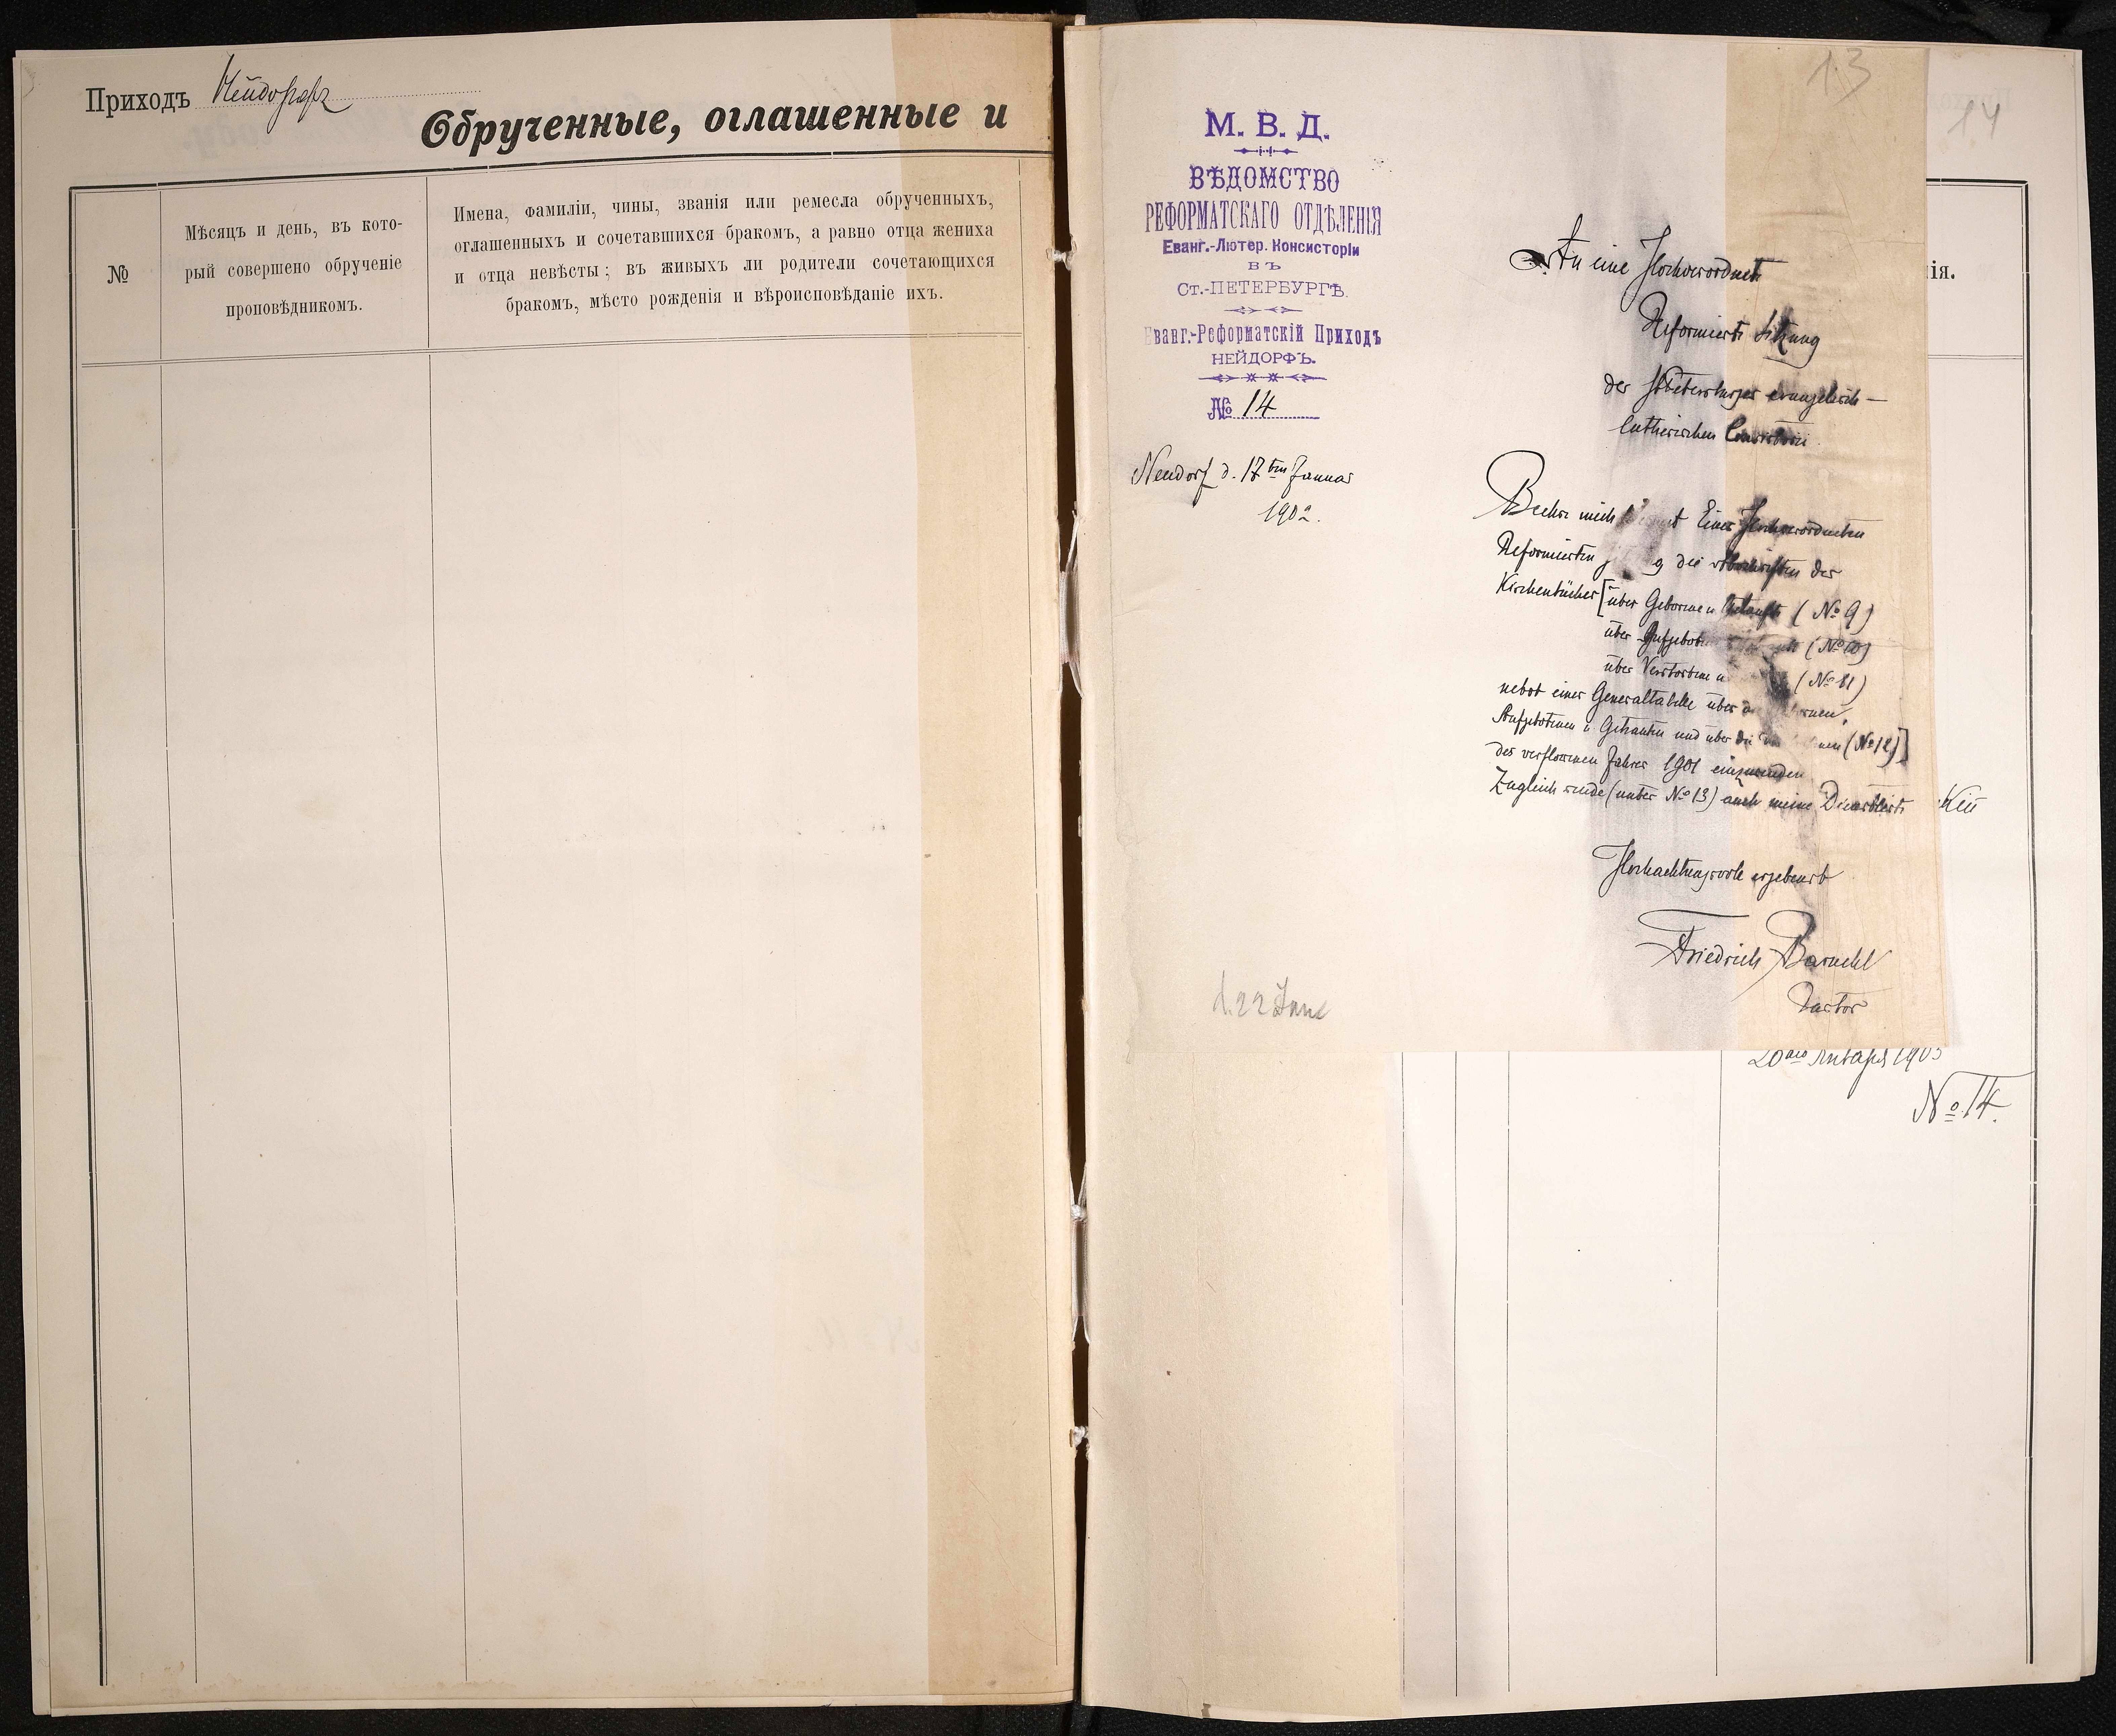 Приходъ Нейдорфъ
Обрученные, оглашенные и
№
Мѣсяцъ и день, въ кото-
рый совершено обрученіе
проповѣдникомъ.
Имена, фамиліи, чины, званія или ремесла обрученныхъ,
оглашенныхъ и сочетавшихся бракомъ, а равно отца жениха
и отца невѣсты; въ живыхъ ли родители сочетающихся
бракомъ, мѣсто рожденія и вѣроисповѣданіе ихъ.
13
14
М. В. Д.
ВѢДОМСТВО
РЕФОРМАТСКАГО ОТДѢЛЕНІЯ
Еванг.-Лютер. Консисторіи
ВЪ
Ст.-ПЕТЕРБУРГѢ.
Еванг.-Реформатскій Приходъ
НЕЙДОРФЪ.
№ 14
Neudorf d. 17ten Januar
1902.
An eine Hochverordnete
Reformierte Sitzung
der St Petersburger evangelisch-
lutherischen Consistorii
Beehre mich Einer Hochverordneten
Reformierten die Abschriften der
Kirchenbücher [über Geborne u Getaufte (№ 9)
über Aufgebotene (№ 10)
über Verstorbene u (№ 11)
nebst einer Generaltabelle über
Aufgebotenen u. Getrauten und über die (№ 12)]
des verflossenen Jahres 1901 einzusenden
Zugleich sende (unter № 13) auch meine Dienstliste
Hochachtungsvoll ergebenst
Friedrich Baruchl
Pastor
d. 22 Janr
ія.
20го Января 1903
№ 14.